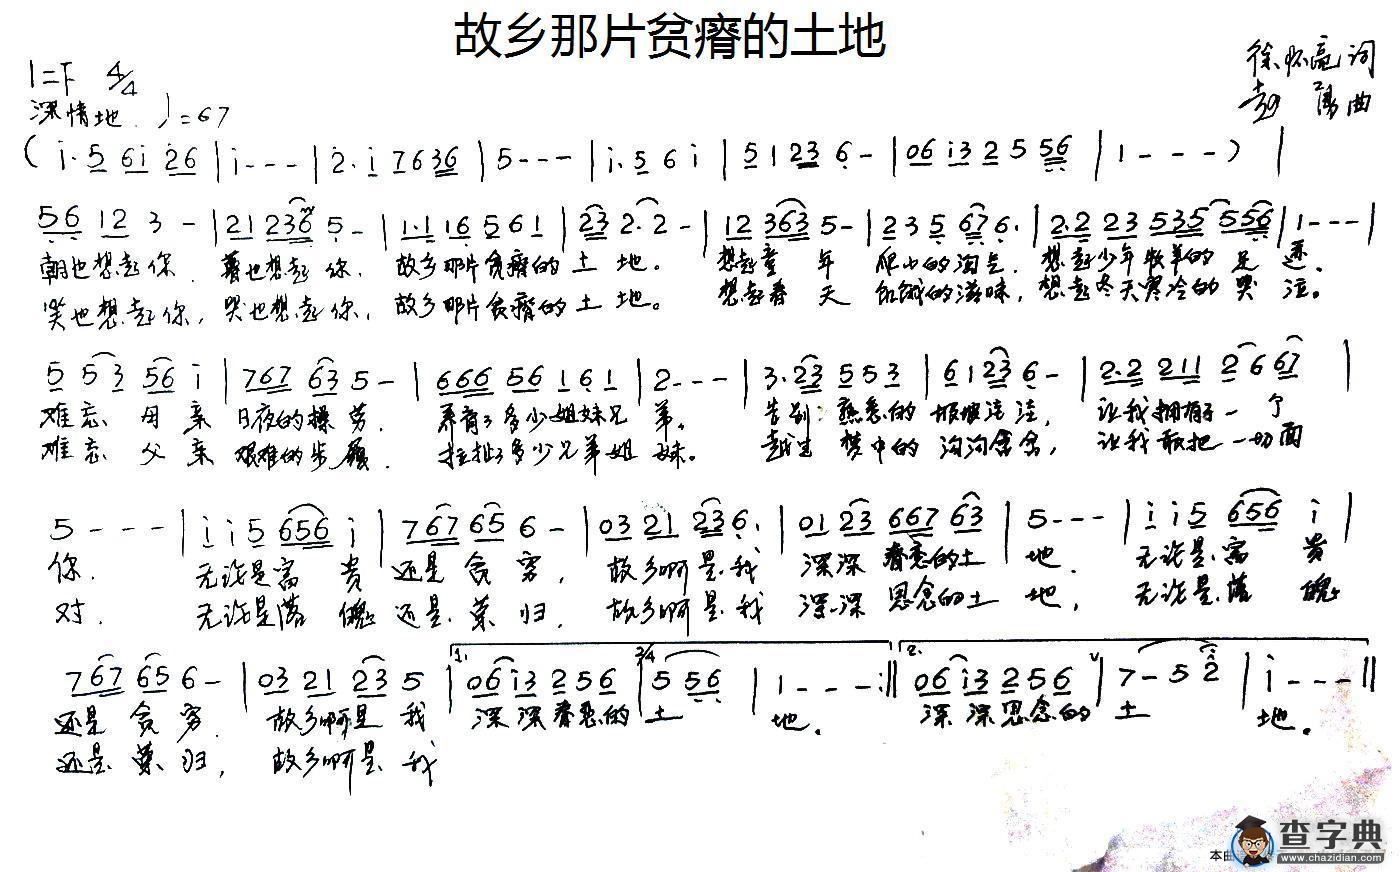 故乡那片贫瘠的土地
1=F 4/4
徐怀亮词
深情地 ♩=67
彭 曲
( i·5 6i 26 | i - - - | 2·i 7636 | 5 - - - | i·5 6 i | 5 1 23 6 - | 06 i3 2 5 56 | 1 - - - ) |
56 12 3 - | 21 236 5 - | 1·1 16 561 | 23 2·2 - | 12 363 5 - | 235 676· | 2·2 23 535 556 | 1 - - - |
朝也想起你 暮也想起你. 故乡那片贫瘠的土地。 想起童年 爬山的淘气. 想起少年牧羊的足迹.
笑也想起你, 哭也想起你, 故乡那片贫瘠的土地。 想起春天 饥饿的滋味, 想起冬天寒冷的哭泣。
5 53 56 i | 767 63 5 - | 666 56 161 | 2 - - - | 3·23 553 | 61 23 6 - | 2·2 211 26 67 |
难忘母亲日夜的操劳. 养育了多少姐妹兄弟。 告别 熟悉的坡坡洼洼, 让我拥有了一个
难忘父亲艰难的步履. 拉扯了多少兄弟姐妹。 越过 梦中的沟沟岔岔, 让我敢把一切面
5 - - - | i i5 656 i | 767 65 6 - | 03 21 236· | 01 23 667 63 | 5 - - - | i i5 656 i |
你. 无论是富贵还是贫穷, 故乡啊是我 深深眷恋的土地. 无论是富贵
对. 无论是落魄还是荣归, 故乡啊是我 深深思念的土地, 无论是落魄
767 65 6 - | 03 21 23 5 | 1. 06 i3 256 | 3/4 5 56 | 1 - - - :|| 2. 06 i3 256 | 7 - 5 2 | i - - - ||
还是贫穷. 故乡啊是我 深深眷恋的土地。 深深思念的土地。
还是荣归, 故乡啊是我
本曲
查字典
www.chazidian.com